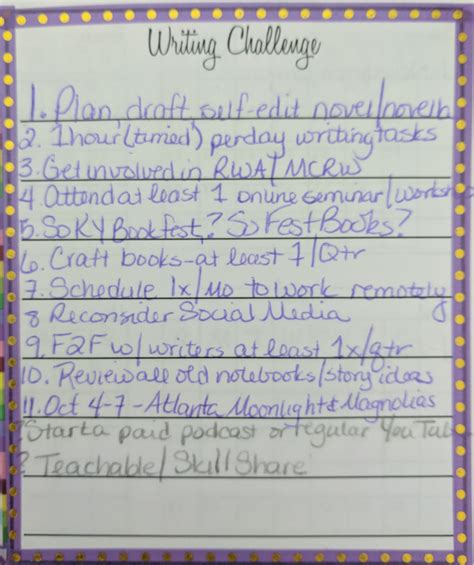 Writing Challenge
1. Plan, draft, self-edit novel/novella
2. 1 hour (timed) per day writing tasks
3. Get involved in RWA/MCRW
4. Attend at least 1 online seminar/works
5. SoKY Book fest? SoFestBooks?
6. Craft books - at least 1/Qtr
7. Schedule 1x/Mo to work remotely
8 Reconsider Social Media
9. F2F w/ writers at least 1x/qtr
10. Review all old notebooks/story ideas
11. Oct 4-7 - Atlanta Moonlight & Magnolias
? Start a paid podcast or regular You Tub
? Teachable/SkillShare